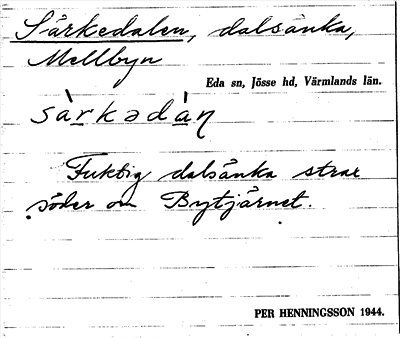 Särkedalen, dalsänka,
Mellbyn
Eda sn, Jösse hd, Värmlands län.
sàrkədàn
Fuktig dalsänka strax
söder om Bytjärnet.
PER HENNINGSSON 1944.